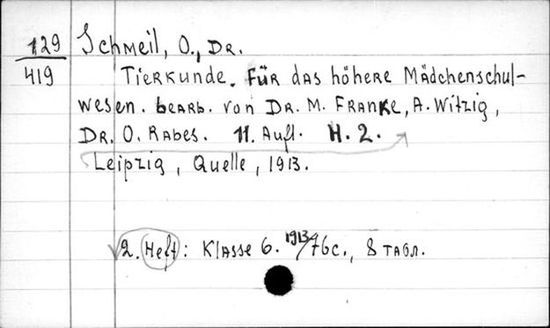 129
419
Schmeil, O., Dr.
Tierkunde. Für das höhere Mädchenschul-
wesen. bearb. von Dr. M. Franke, A. Witzig,
Dr. O. Rabes. 11. Aufl. H. 2.
Leipzig, Quelle, 1913.
2. Heft: Klasse 6. 1913/76c., 8 табл.